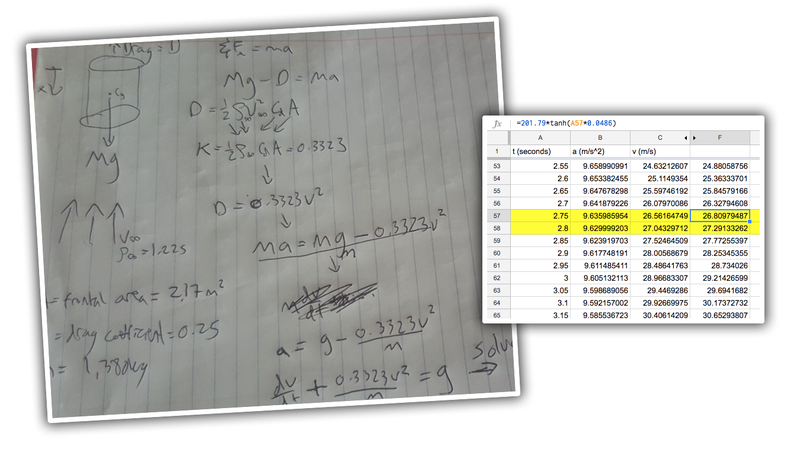 Drag = D
ΣFx = ma
x
Mg - D = ma
D = ½ρ∞V∞²CdA
K = ½ρ∞CdA = 0.3323
Mg
D = 0.3323v²
V∞
ρ∞ = 1.225
ma = mg - 0.3323v²
m
= frontal area = 2.17 m²
= drag coefficient = 0.25
a = g - 0.3323v²
m
dv
dt
+ 0.3323v²
m
= g
fx =201.79*tanh(A57*0.0486)
A B C F
1 t (seconds) a (m/s^2) v (m/s)
53 2.55 9.658990991 24.63212607 24.88058756
54 2.6 9.653382455 25.1149354 25.36333701
55 2.65 9.647678298 25.59746192 25.84579166
56 2.7 9.641879226 26.07970086 26.32794608
57 2.75 9.635985954 26.56164749 26.80979487
58 2.8 9.629999203 27.04329712 27.29133262
59 2.85 9.623919703 27.52464509 27.77255397
60 2.9 9.617748191 28.00568679 28.25345355
61 2.95 9.611485411 28.48641763 28.734026
62 3 9.605132113 28.96683307 29.21426599
63 3.05 9.598689056 29.4469286 29.6941682
64 3.1 9.592157002 29.92669975 30.17372732
65 3.15 9.585536723 30.40614209 30.65293807